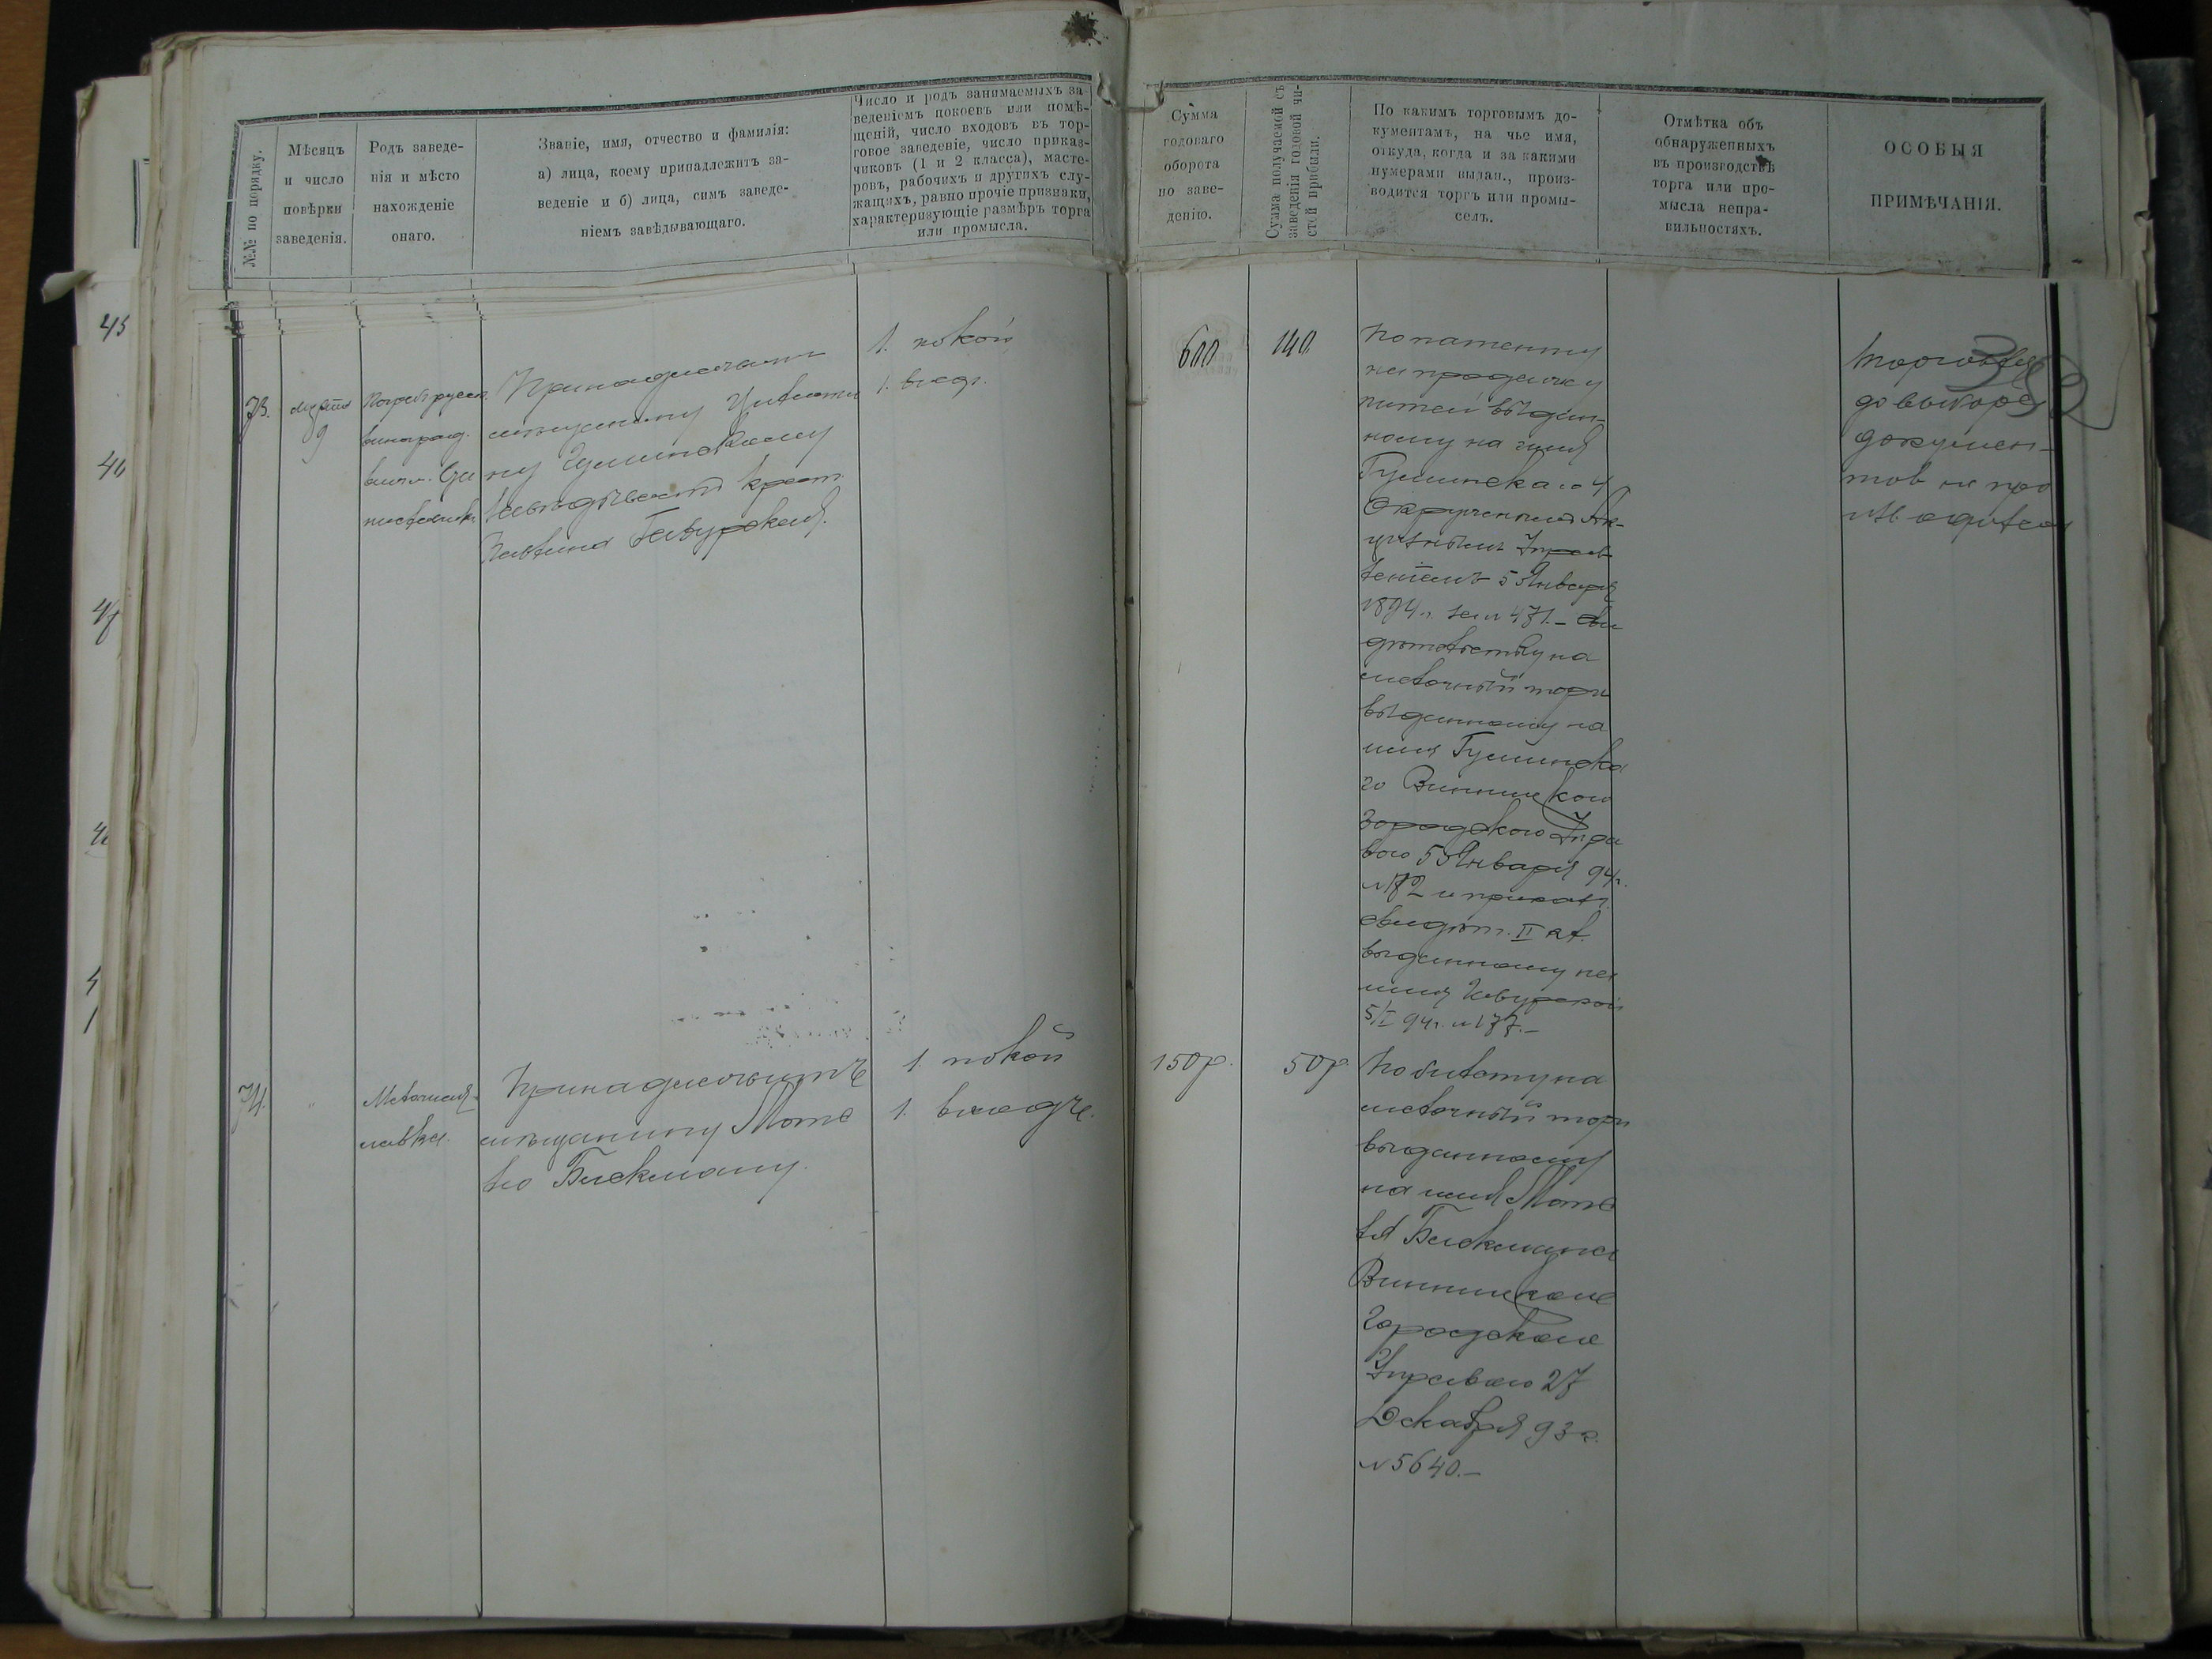 №№ по порядку.
Мѣсяцъ
и число
повѣрки
заведенія.
Родъ заведе-
нія и мѣсто
нахожденіе
онаго.
Званіе, имя, отчество и фамилія:
а) лица, коему принадлежитъ за-
веденіе и б) лица, симъ заведе-
ніемъ завѣдывающаго.
Число и родъ занимаемыхъ за-
веденіемъ покоевъ или помѣ-
щеній, число входовъ въ тор-
говое заведеніе, число приказ-
чиковъ (1 и 2 класса), масте-
ровъ, рабочихъ и другихъ слу-
жащихъ, равно прочіе признаки,
характеризующіе размѣръ торга
или промысла.
Сумма
годоваго
оборота
по заве-
денію.
Сумма получаемой съ
заведенія годовой чи-
стой прибыли.
По какимъ торговымъ до-
кументамъ, на чье имя,
откуда, когда и за какими
нумерами выдан., произ-
водится торгъ или промы-
селъ.
Отмѣтка объ
обнаруженныхъ
въ производствѣ
торга или про-
мысла непра-
вильностяхъ.
ОСОБЫЯ
ПРИМѢЧАНІЯ.
45
73.
9
Погребъ русск.
виноград.
Принадлежитъ
Гуминскому
завѣдываетъ крест.
1. покой
1. входъ.
600
140
По патенту
на продажу
питей выдан-
ному на имя
Гуминскаго 4
Окружнымъ Ак-
цизнымъ Управ-
леніемъ 5 Января
1894 г. за № 471.– Сви
дѣтельству на
мелочный торгъ
выданному на
имя Гуминска
го Винницкою
Городскою Упра
вою 5 Января 94 г.
№ 72 и приказ.
свидѣт. II кл.
выданному на
имя
5/I 94 г. № 177.–
Торговля
до выборки
докумен-
товъ не про
изводилась
74.
Мелочная
лавка.
Принадлежитъ
мѣщанину Моте
лю Блекману.
1. покой
1. входъ.
150 р.
50 р.
По билету на
мелочный торгъ
выданному
на имя Моте
ля Блекмана
Винницкою
Городскою
Управою 27
Декабря 93 г.
№ 5640.–